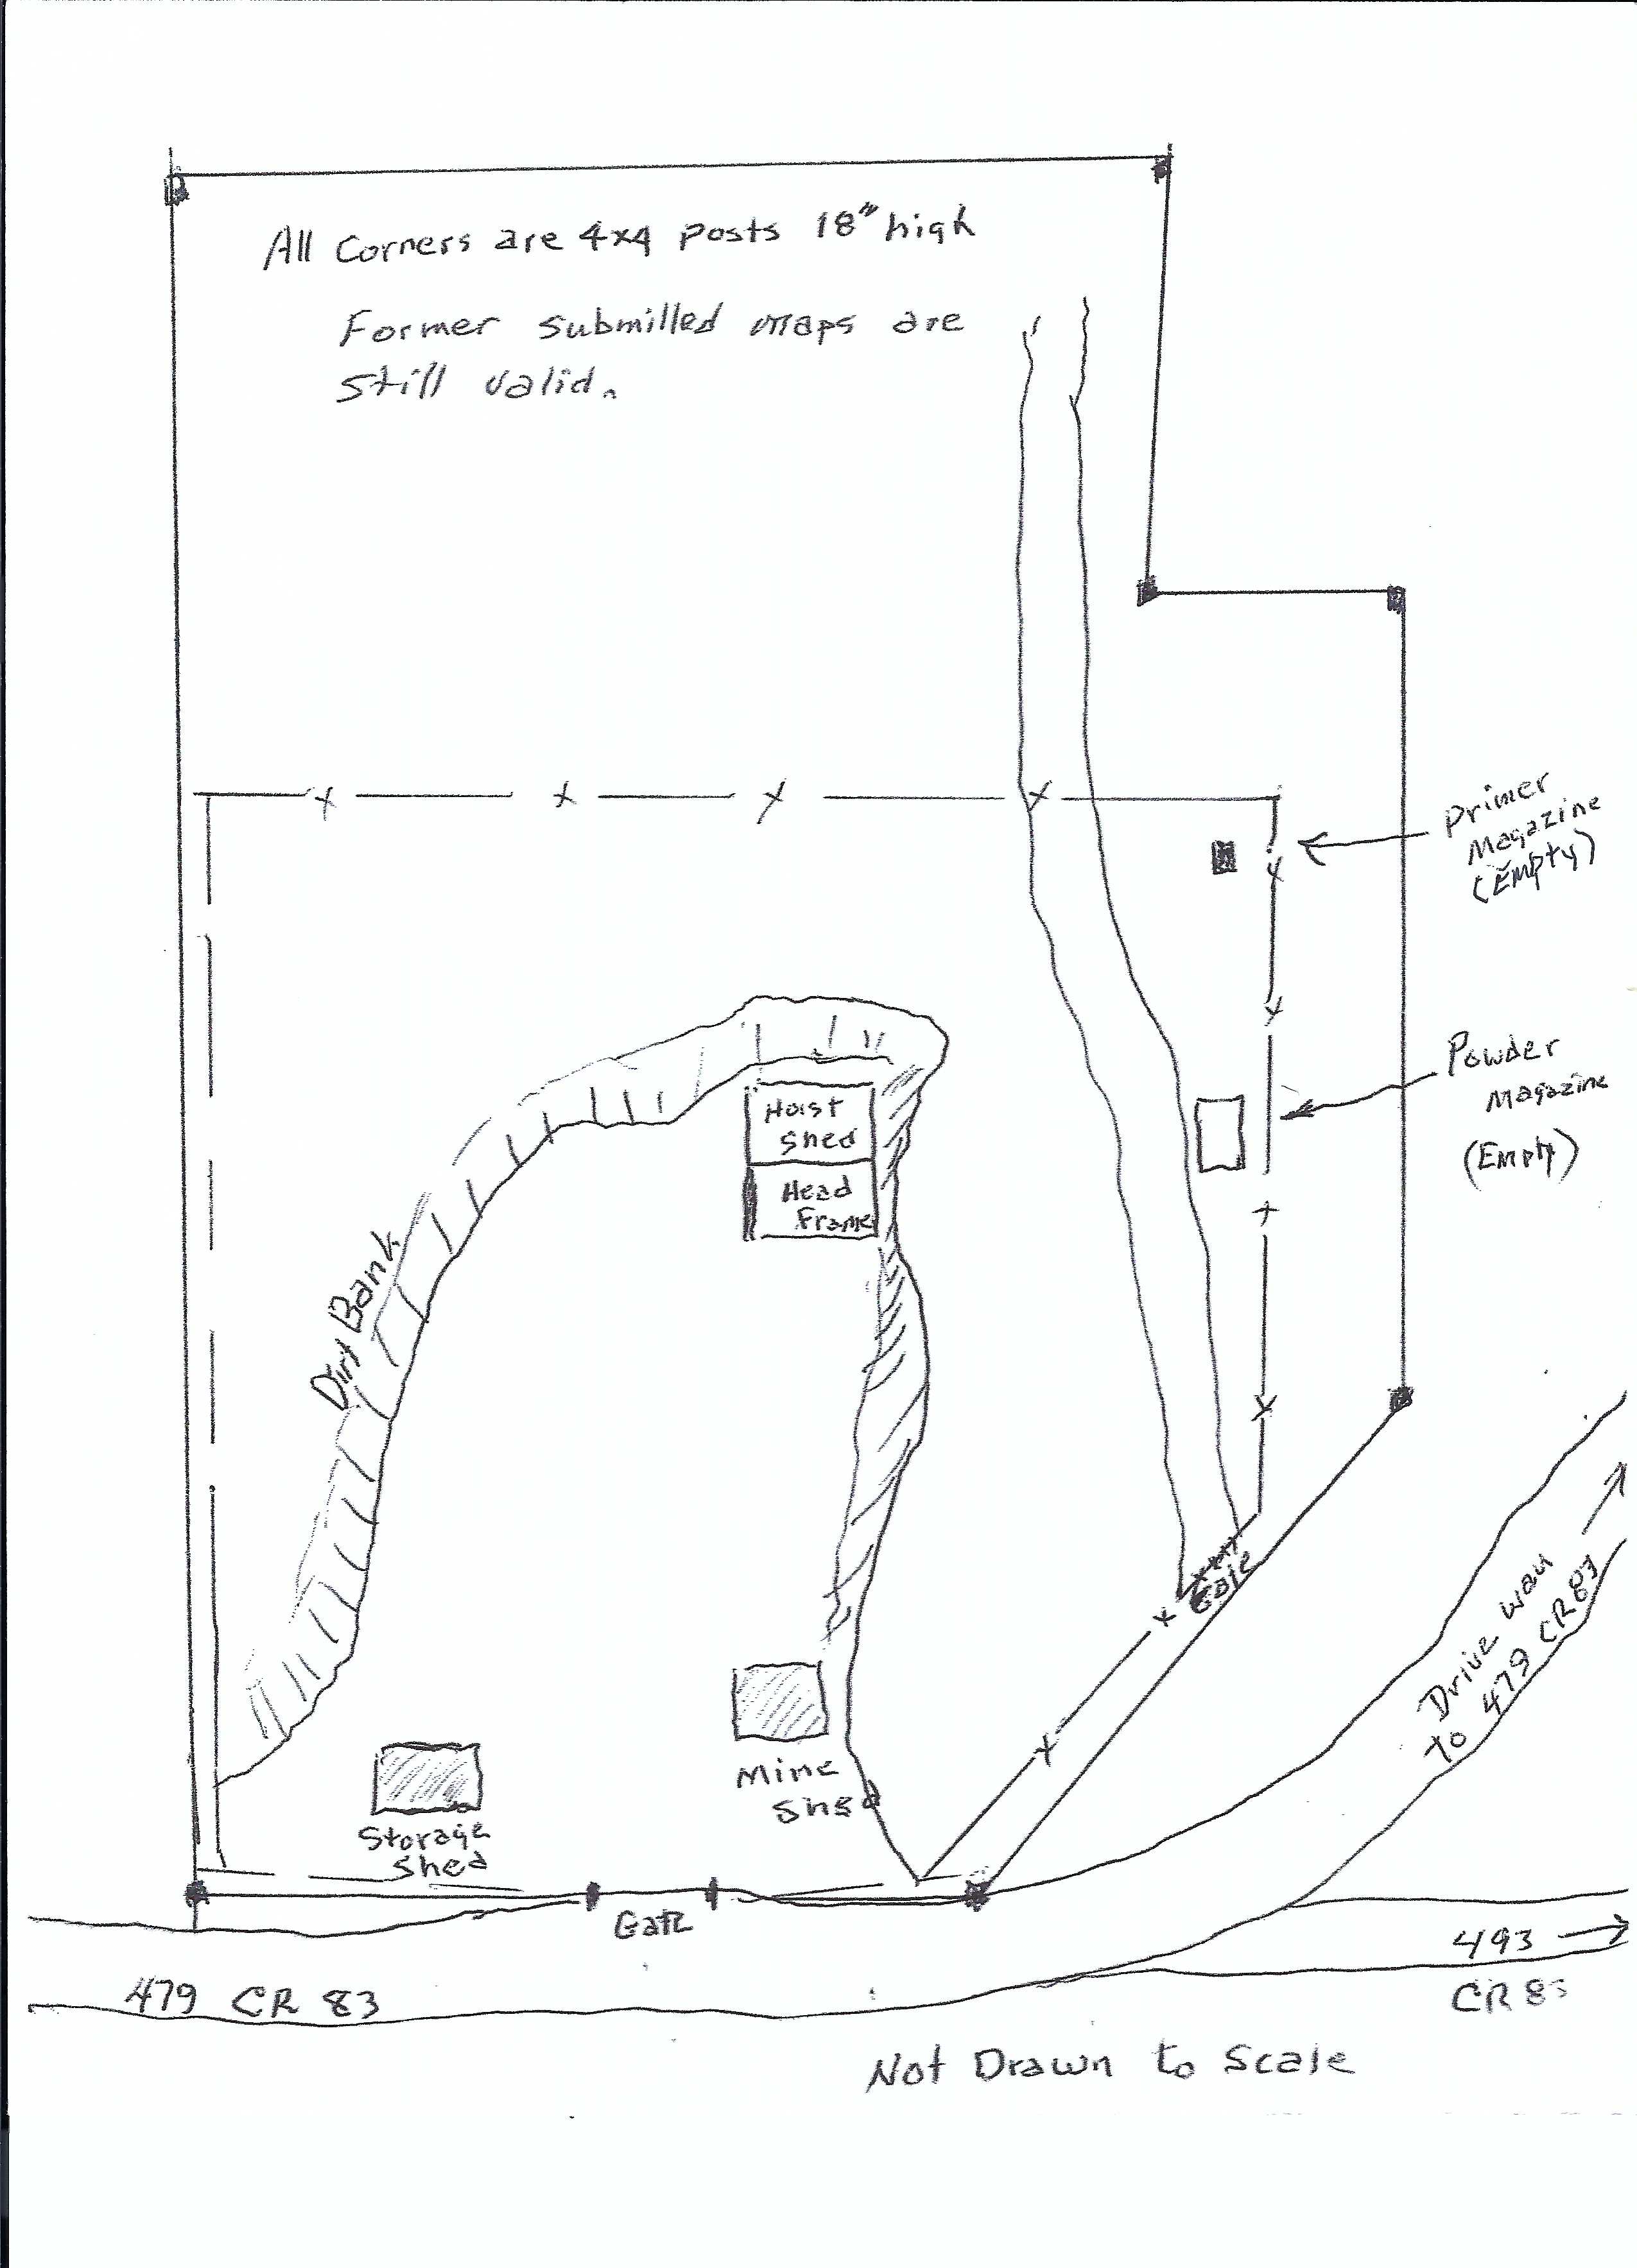 All Corners are 4x4 posts 18" high
Former submilled maps are
still valid.
Primer
Magazine
(Empty)
Powder
Magazine
(Empty)
Hoist
Shed
Head
Frame
Dirt Bank
Gate
Mine
Shed
Storage
Shed
Gate
Drive way
to 479 CR 83
479 CR 83
493
CR 83
Not Drawn to Scale